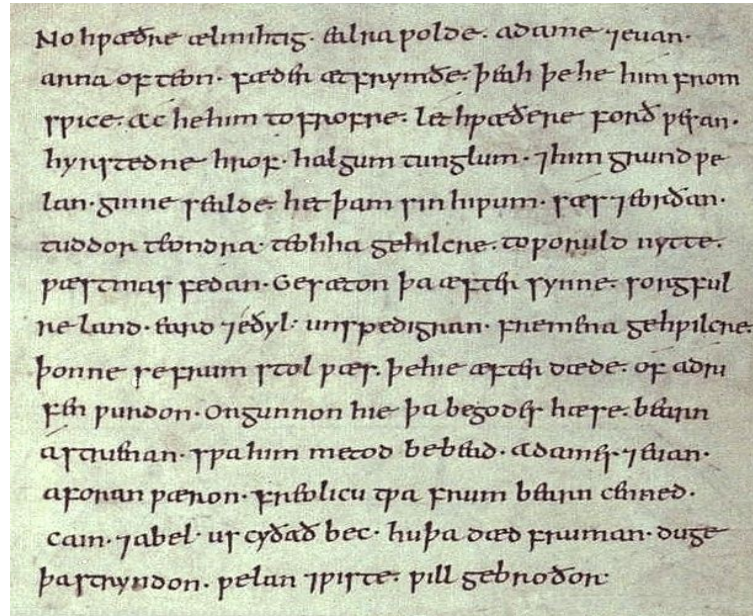 No hƿæðre ælmihtig· ealra ƿolde· adame ⁊euan·
arna ofteon· fæder ætfrymðe· þeah þe he him from
sƿice· ac hehim tofrofre· let hƿæðere forð ƿesan·
hyrstedne hrof· halgum tunglum· ⁊him grund ƿe
lan· ginne sealde· het þam sin hiƿum· sæs ⁊eorðan·
tuddor teondra· teohha gehilcre· toƿoruld nytte·
ƿæstmas fedan· Gesæton þa æfter synne· sorgful
re land· eard ⁊eðyl· unspedigran· fremena gehƿilcre·
þonne se frum stol ƿæs· þehie æfter dæde· of adri
fen ƿurdon· Ongunnon hie þa begodes hæse· bearn
astrienan· sƿa him metod bebead· adames ⁊euan·
aforan ƿæron· freolicu tƿa frum bearn cenned·
cain· ⁊abel· us cyðað bec· huþa dæd fruman· duge
þastryndon· ƿelan ⁊ƿiste· ƿill gebroðor·